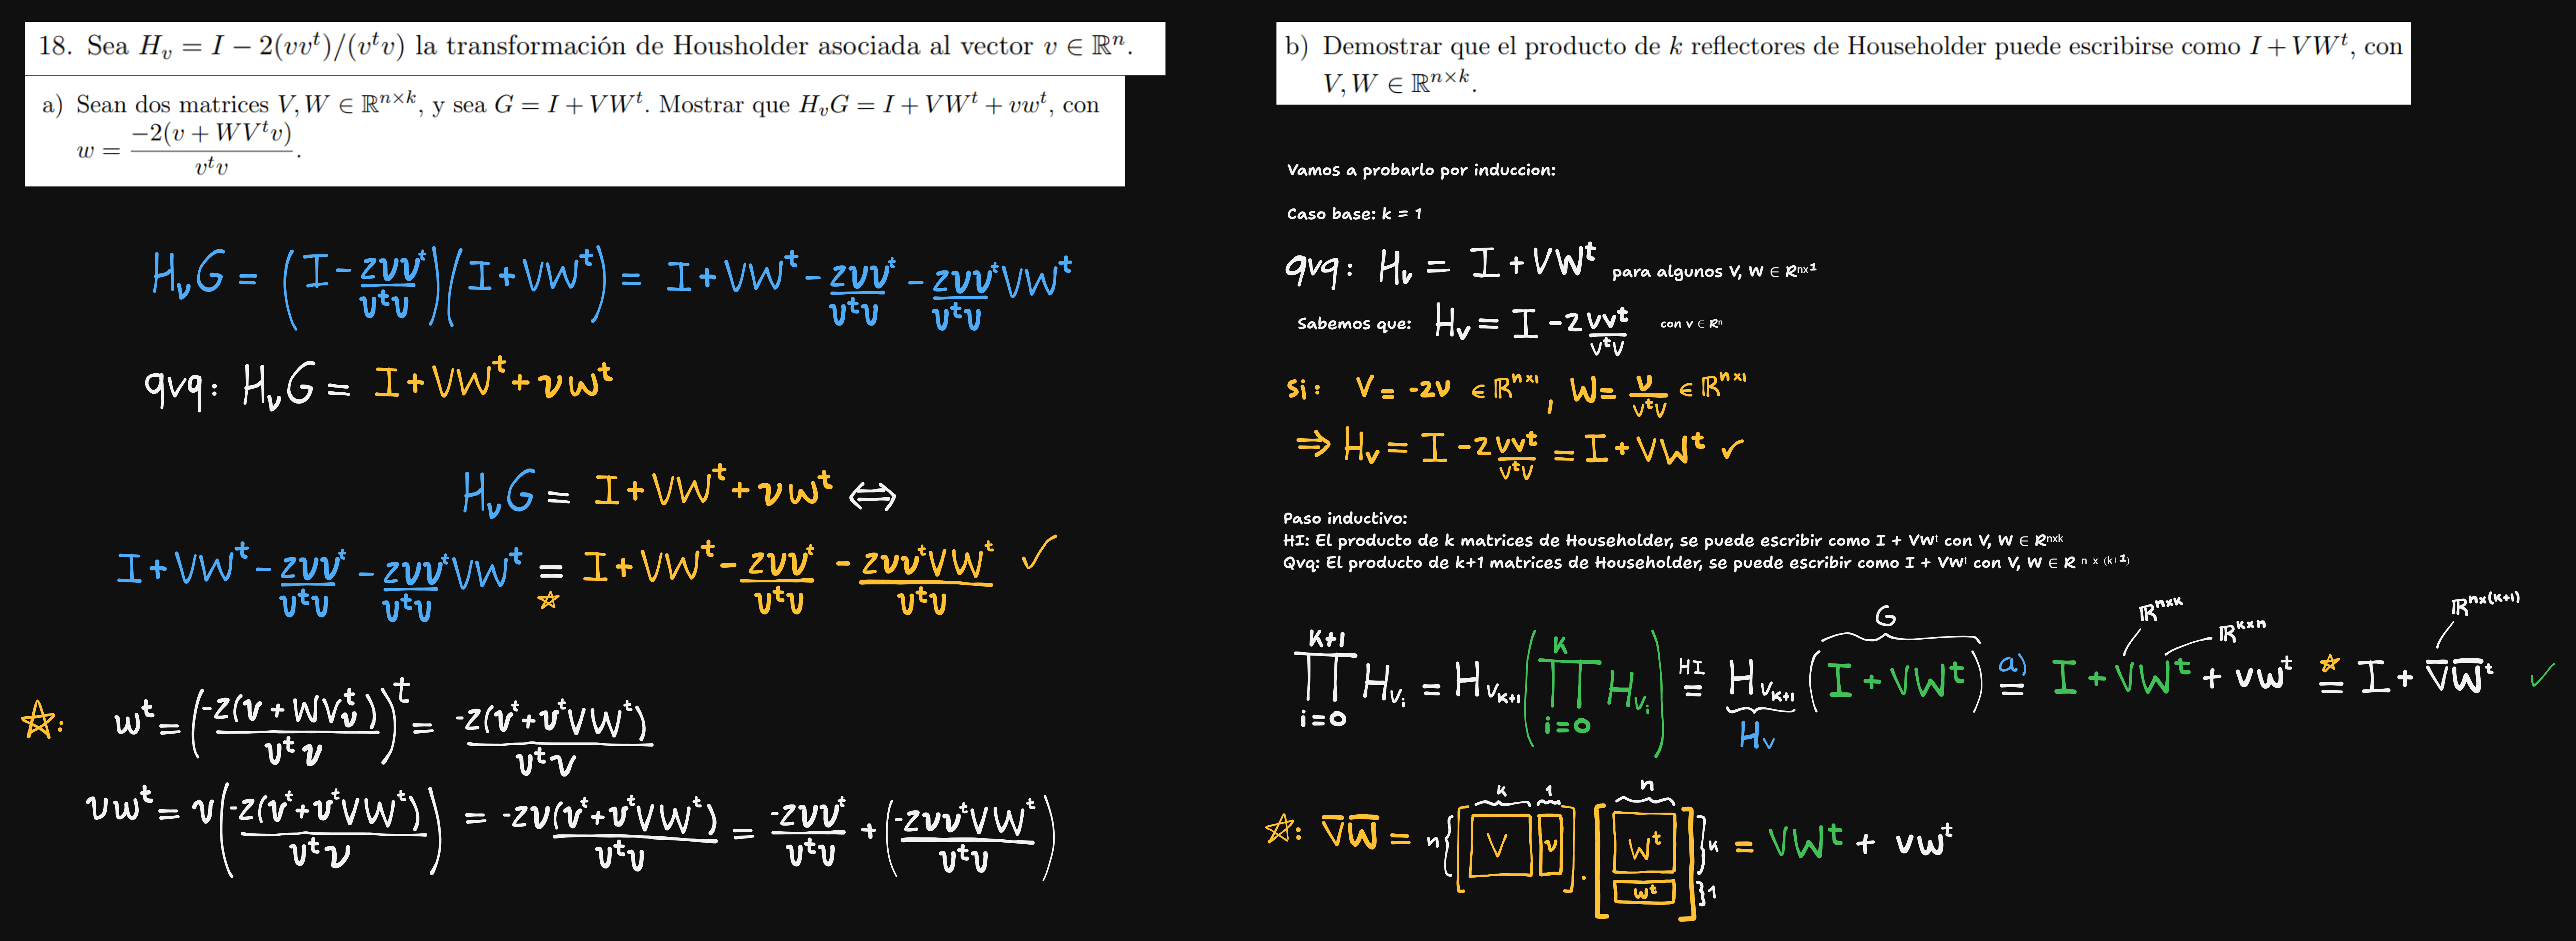 18. Sea H_v = I − 2(vv^t)/(v^tv) la transformación de Housholder asociada al vector v ∈ ℝ^n.
a) Sean dos matrices V, W ∈ ℝ^{n×k}, y sea G = I + VW^t. Mostrar que H_vG = I + VW^t + vw^t, con
w = \frac{-2(v + WV^tv)}{v^tv}.
H_vG = (I - \frac{2vv^t}{v^tv})(I + VW^t) = I + VW^t - \frac{2vv^t}{v^tv} - \frac{2vv^t}{v^tv}VW^t
qvq: H_vG = I + VW^t + vw^t
H_vG = I + VW^t + vw^t ⟺
I + VW^t - \frac{2vv^t}{v^tv} - \frac{2vv^t}{v^tv}VW^t =_☆ I + VW^t - \frac{2vv^t}{v^tv} - \frac{2vv^tVW^t}{v^tv} ✓
☆: w^t = (\frac{-2(v + WV^tv)}{v^tv})^t = \frac{-2(v^t + v^tVW^t)}{v^tv}
vw^t = v(\frac{-2(v^t + v^tVW^t)}{v^tv}) = \frac{-2v(v^t + v^tVW^t)}{v^tv} = \frac{-2vv^t}{v^tv} + (\frac{-2vv^tVW^t}{v^tv})
b) Demostrar que el producto de k reflectores de Householder puede escribirse como I + VW^t, con
V, W ∈ ℝ^{n×k}.
Vamos a probarlo por induccion:
Caso base: k = 1
qvq: H_v = I + VW^t para algunos V, W ∈ R^{nx1}
Sabemos que: H_v = I - 2\frac{vv^t}{v^tv} con v ∈ R^n
Si: V = -2v ∈ ℝ^{n×1}, W = \frac{v}{v^tv} ∈ ℝ^{n×1}
⇒ H_v = I - 2\frac{vv^t}{v^tv} = I + VW^t ✓
Paso inductivo:
HI: El producto de k matrices de Householder, se puede escribir como I + VW^t con V, W ∈ R^{nxk}
Qvq: El producto de k+1 matrices de Householder, se puede escribir como I + VW^t con V, W ∈ R^{n x (k+1)}
G ℝ^{n×k} ℝ^{k×n} ℝ^{n×(k+1)}
∏_{i=0}^{k+1} H_{v_i} = H_{v_{k+1}} (∏_{i=0}^{k} H_{v_i}) =^{HI} H_{v_{k+1}} (I + VW^t) =^{a)} I + VW^t + vw^t =^☆ I + V̅W̅^t ✓
H_v
k 1 n
☆: V̅W̅ = n{[V v] · [W^t w^t]}k }1 = VW^t + vw^t